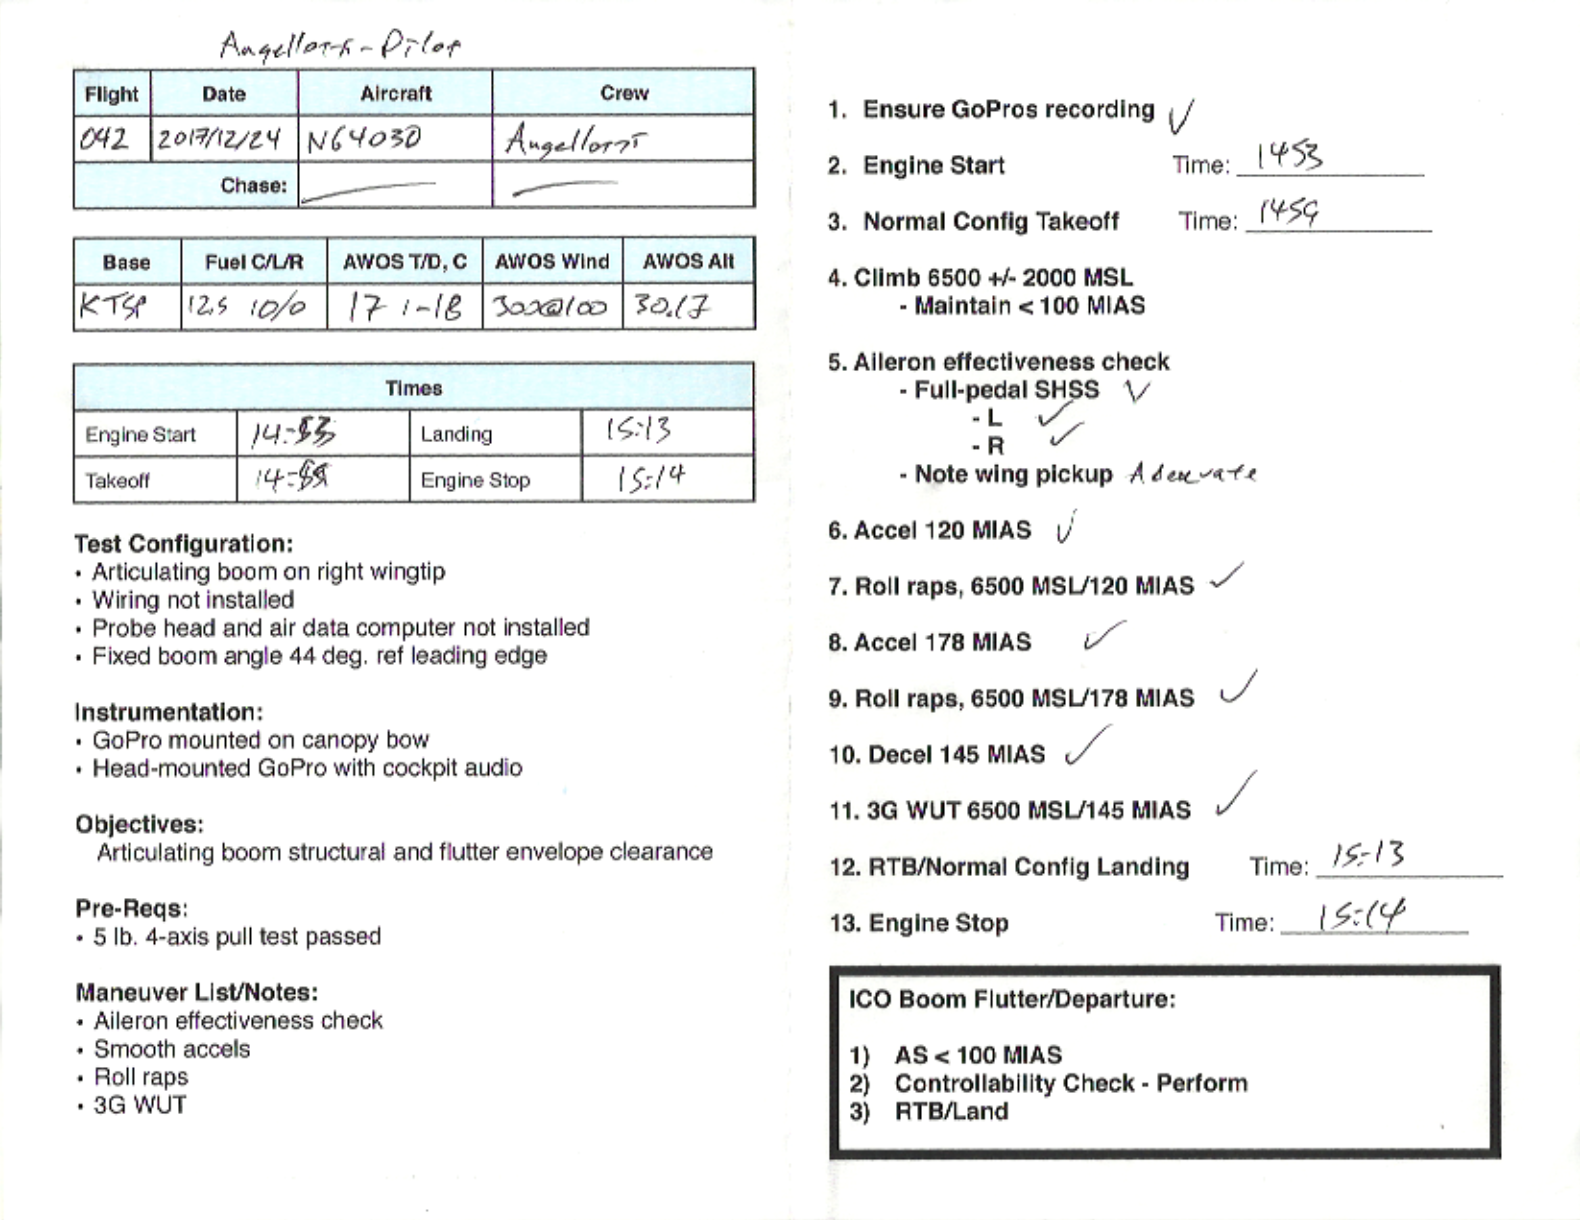 Angellotti - Pilot
Flight Date Aircraft Crew
042 2017/12/24 N64030 Angellotti
Chase:
Base Fuel C/L/R AWOS T/D, C AWOS Wind AWOS Alt
KTSP 12.5 10/0 17 / -18 300@100 30.17
Times
Engine Start 14:53 Landing 15:13
Takeoff 14:59 Engine Stop 15:14
Test Configuration:
• Articulating boom on right wingtip
• Wiring not installed
• Probe head and air data computer not installed
• Fixed boom angle 44 deg. ref leading edge
Instrumentation:
• GoPro mounted on canopy bow
• Head-mounted GoPro with cockpit audio
Objectives:
Articulating boom structural and flutter envelope clearance
Pre-Reqs:
• 5 lb. 4-axis pull test passed
Maneuver List/Notes:
• Aileron effectiveness check
• Smooth accels
• Roll raps
• 3G WUT
1. Ensure GoPros recording ✓
2. Engine Start Time: 1453
3. Normal Config Takeoff Time: 1459
4. Climb 6500 +/- 2000 MSL
- Maintain < 100 MIAS
5. Aileron effectiveness check
- Full-pedal SHSS ✓
- L ✓
- R ✓
- Note wing pickup Adequate
6. Accel 120 MIAS ✓
7. Roll raps, 6500 MSL/120 MIAS ✓
8. Accel 178 MIAS ✓
9. Roll raps, 6500 MSL/178 MIAS ✓
10. Decel 145 MIAS ✓
11. 3G WUT 6500 MSL/145 MIAS ✓
12. RTB/Normal Config Landing Time: 15:13
13. Engine Stop Time: 15:14
ICO Boom Flutter/Departure:
1) AS < 100 MIAS
2) Controllability Check - Perform
3) RTB/Land